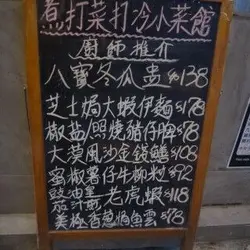 煮打菜打冷小菜館
廚師推介
八寶冬瓜盅$138
芝士焗大蝦伊麵$178
椒鹽焗燒豬仔脾$178
大漠風沙金錢鱔$108
蜜椒薯仔牛柳粒$72
豉油皇 茄汁煎 老虎蝦$118
美極香蔥焗魚雲$78